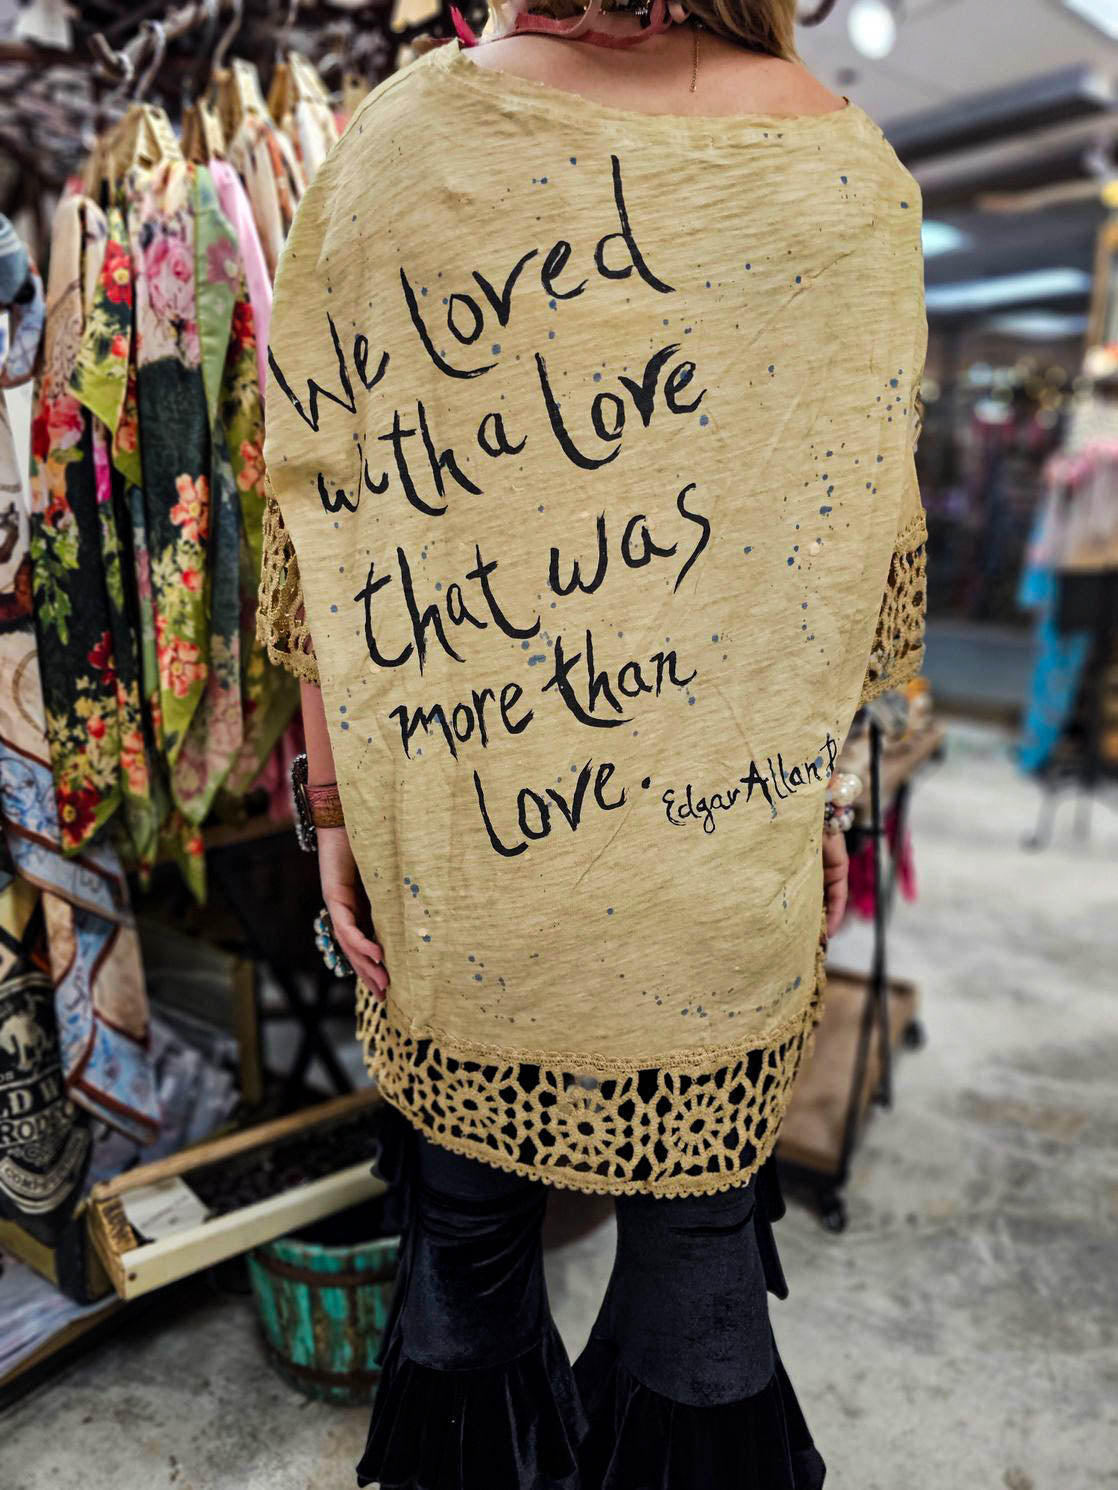 We loved
with a love
that was
more than
love. Edgar Allan P
LD W
RODE